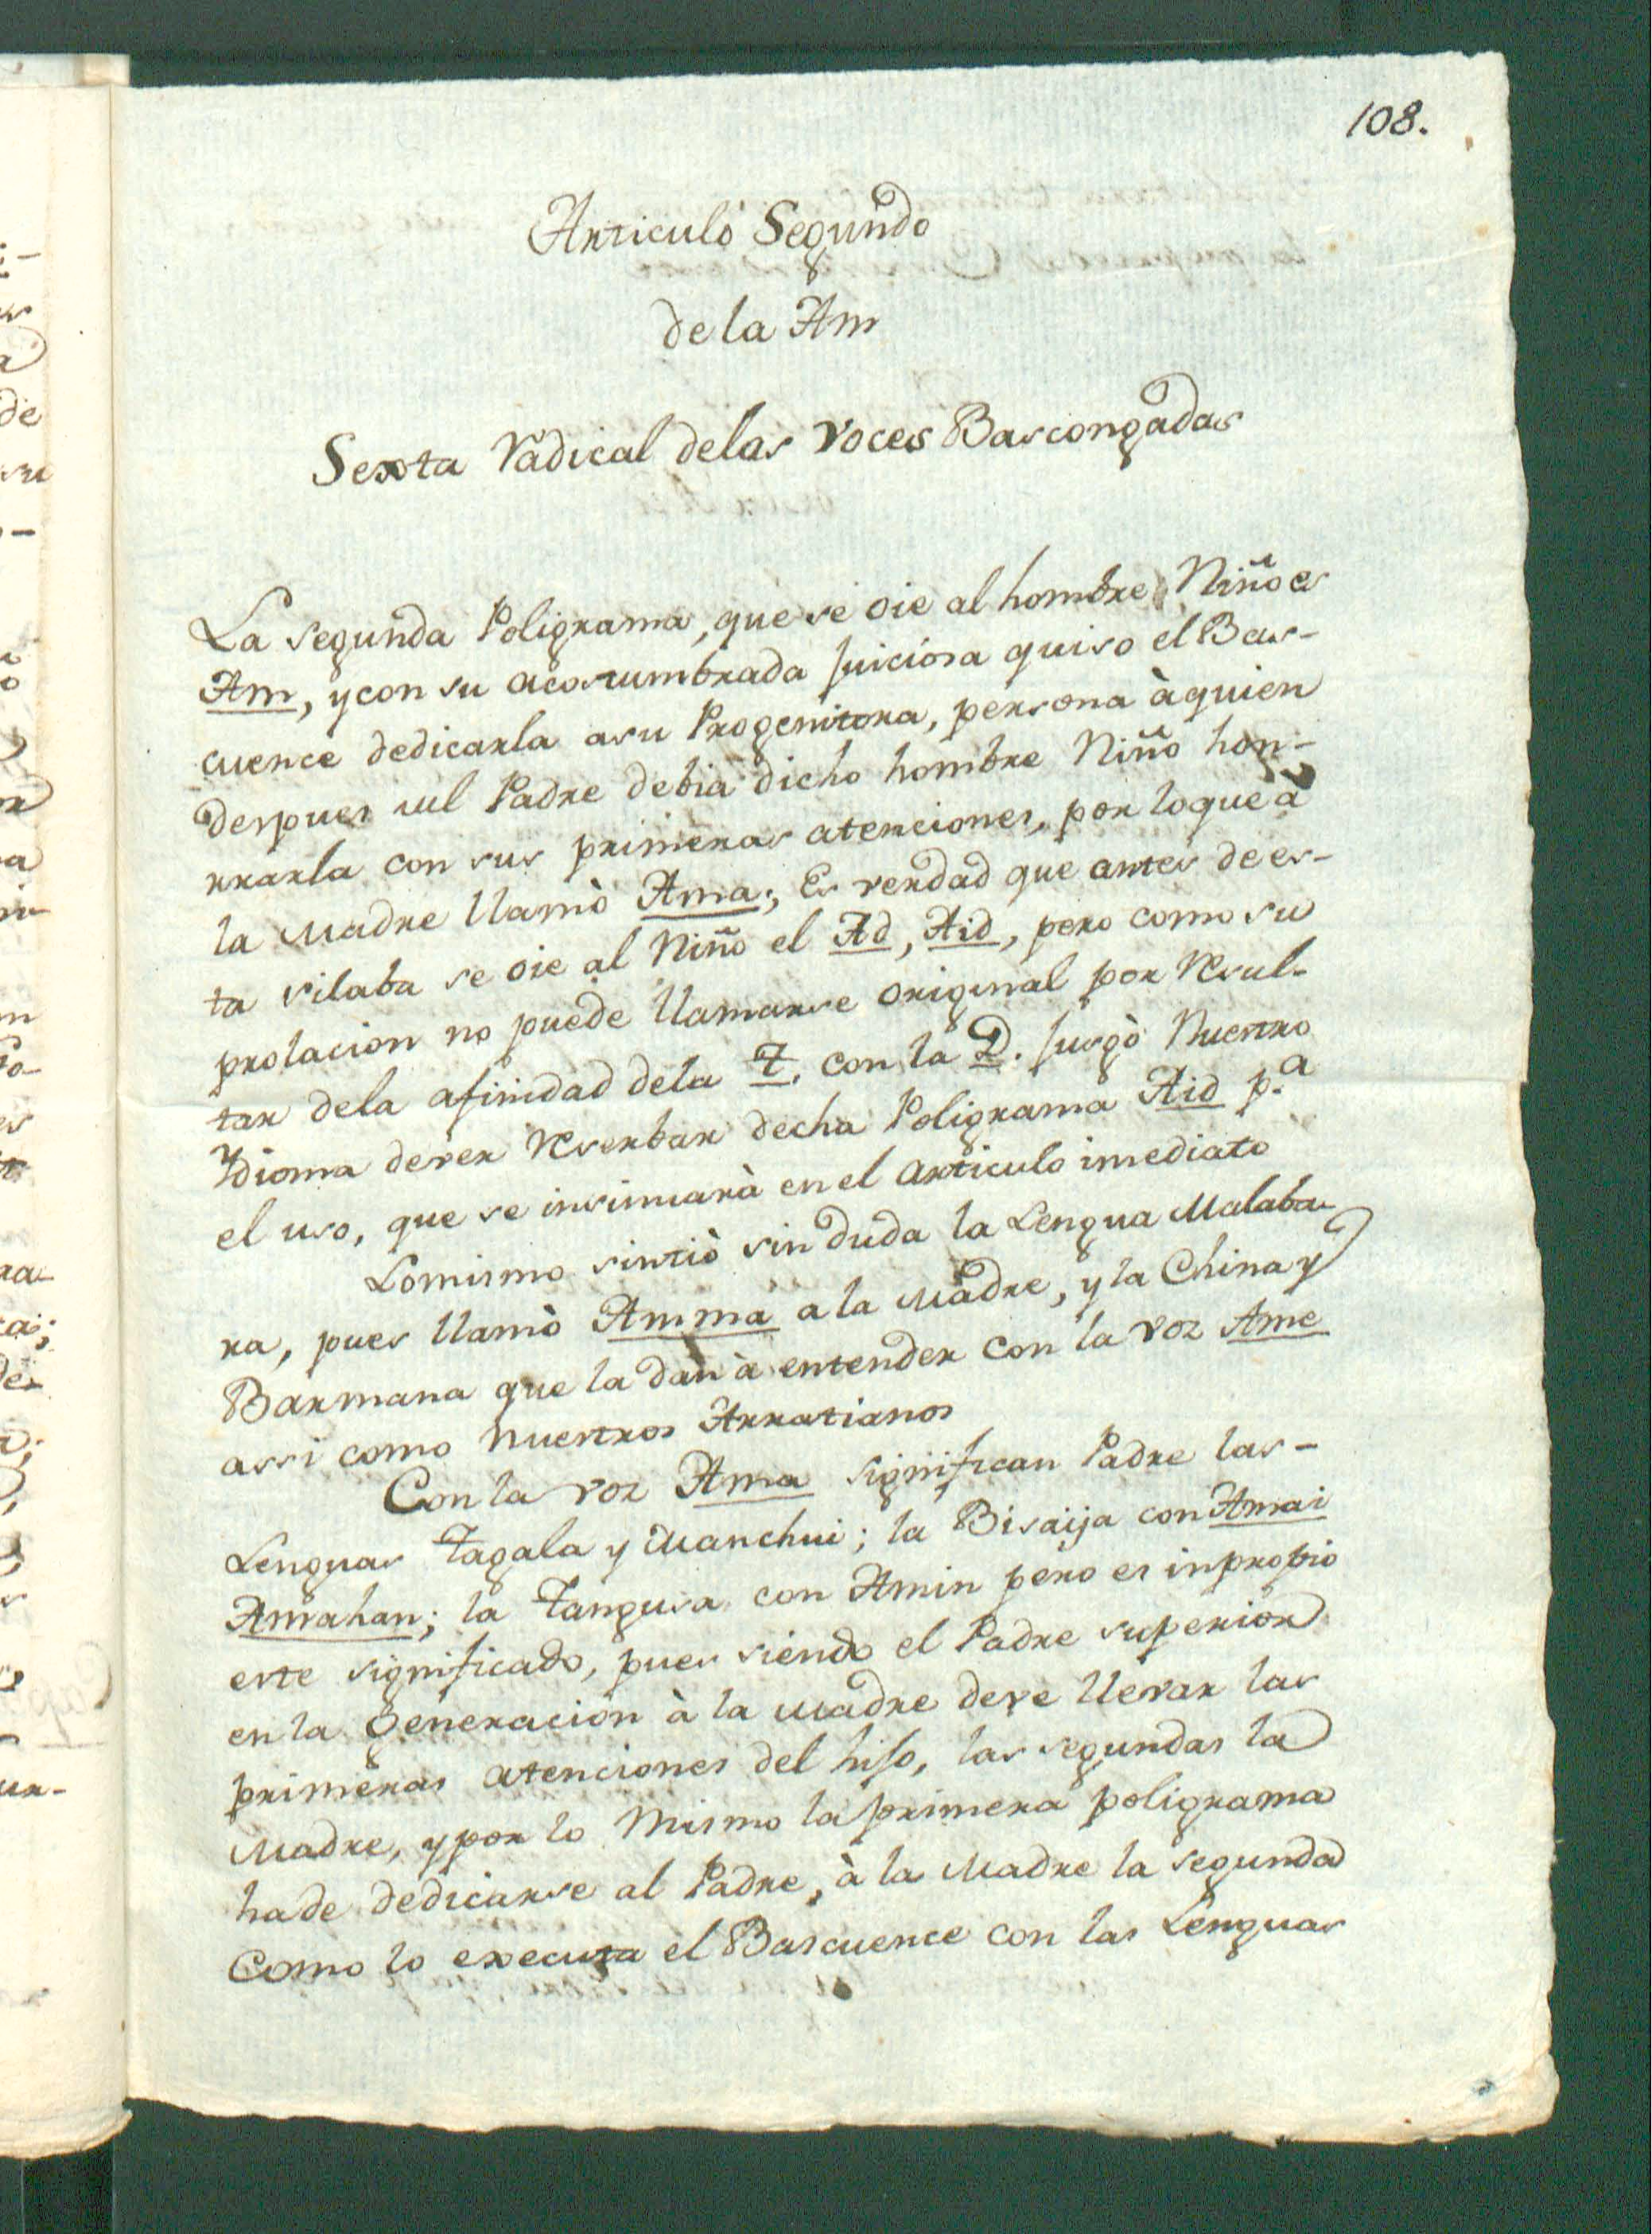 108.
Articulo Segundo
de la Am
Sexta radical delas voces Bascongadas
La segunda Poligrama, que se oie al hombre Niño es
Am, y con su acostumbrada juiciosa quiso el Bas-
cuence dedicarla asu Progenitora, persona à quien
despues del Padre debia dicho hombre Niño hon-
rrarla con sus primeras atenciones, por loque à
la Madre llamò Ama; Es verdad que antes de es-
ta silaba se oie al Niño el Ad, Aid, pero como su
prolacion no puede llamarse original por resul-
tar dela afinidad dela T. con la D. jusgò Nuestro
Ydioma dever reserbar decha Poligrama Aid p.a
el uso, que se insinuarà en el articulo imediato
Lomismo sintiò sin duda la Lengua Malaba-
ra, pues llamò Amma a la Madre, y la China y
Barmana que la dan à entender con la voz Ame
assi como nuestros Arratianos
Con la voz Ama significan Padre las-
Lenguas Tagala y Manchui; la Bisaija con Amai
Amahan; la Tangusa con Amin pero es inpropio
este significado, pues siendo el Padre superior
en la generacion à la Madre deve llevar las
primeras atenciones del hijo, las segundas la
Madre, y por lo mismo la primera poligrama
hade dedicarse al Padre, à la Madre la segunda
Como lo executa el Bascuence con las Lenguas